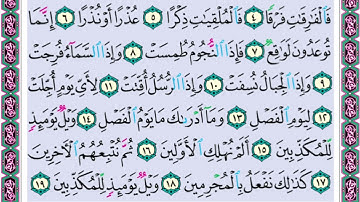 فَٱلْفَٰرِقَٰتِ فَرْقًا ٤ فَٱلْمُلْقِيَٰتِ ذِكْرًا ٥ عُذْرًا أَوْ نُذْرًا ٦ إِنَّمَا
تُوعَدُونَ لَوَٰقِعٌ ٧ فَإِذَا ٱلنُّجُومُ طُمِسَتْ ٨ وَإِذَا ٱلسَّمَآءُ فُرِجَتْ
٩ وَإِذَا ٱلْجِبَالُ نُسِفَتْ ١٠ وَإِذَا ٱلرُّسُلُ أُقِّتَتْ ١١ لِأَىِّ يَوْمٍ أُجِّلَتْ
١٢ لِيَوْمِ ٱلْفَصْلِ ١٣ وَمَآ أَدْرَىٰكَ مَا يَوْمُ ٱلْفَصْلِ ١٤ وَيْلٌ يَوْمَئِذٍ
لِّلْمُكَذِّبِينَ ١٥ أَلَمْ نُهْلِكِ ٱلْأَوَّلِينَ ١٦ ثُمَّ نُتْبِعُهُمُ ٱلْءَاخِرِينَ
١٧ كَذَٰلِكَ نَفْعَلُ بِٱلْمُجْرِمِينَ ١٨ وَيْلٌ يَوْمَئِذٍ لِّلْمُكَذِّبِينَ ١٩